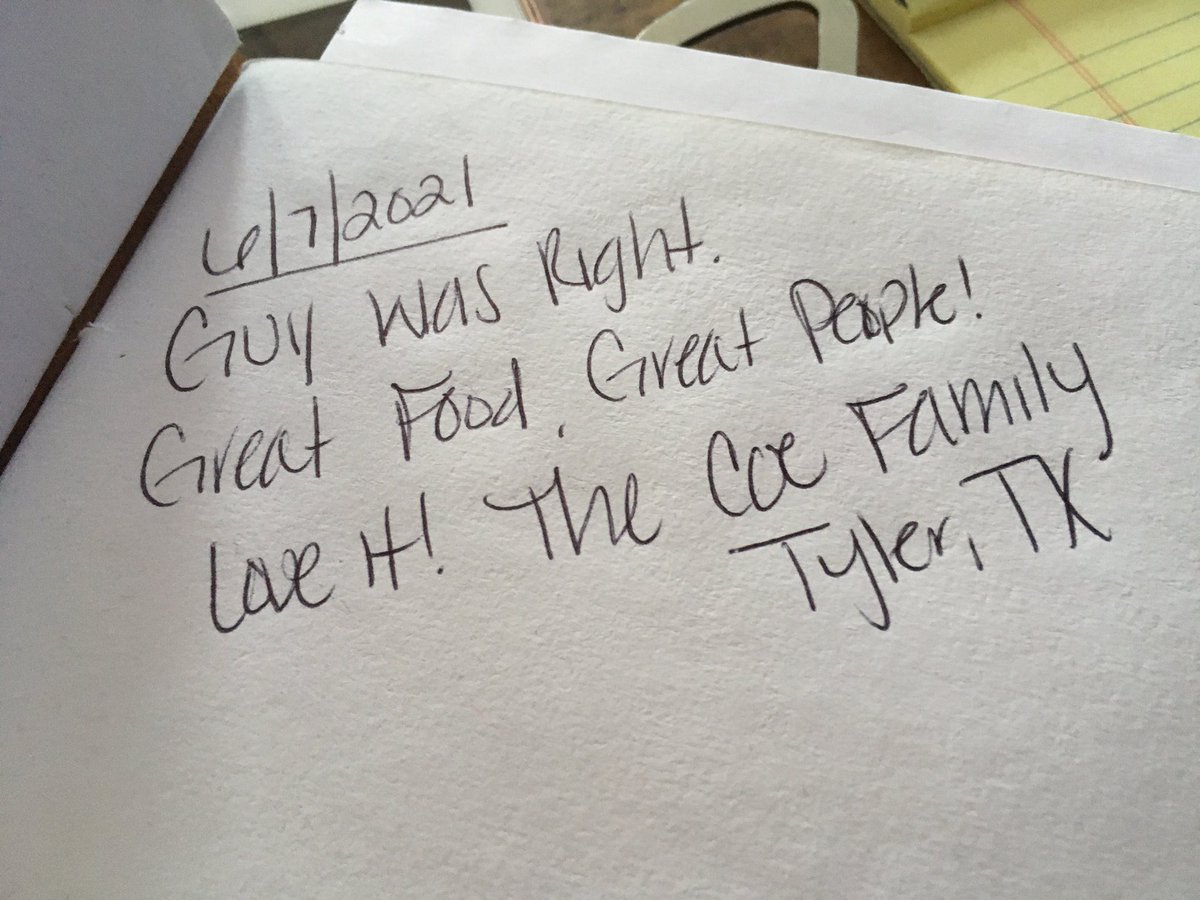 6/7/2021
Guy was Right.
Great Food. Great People!
Love It! The Coe Family
Tyler, TX